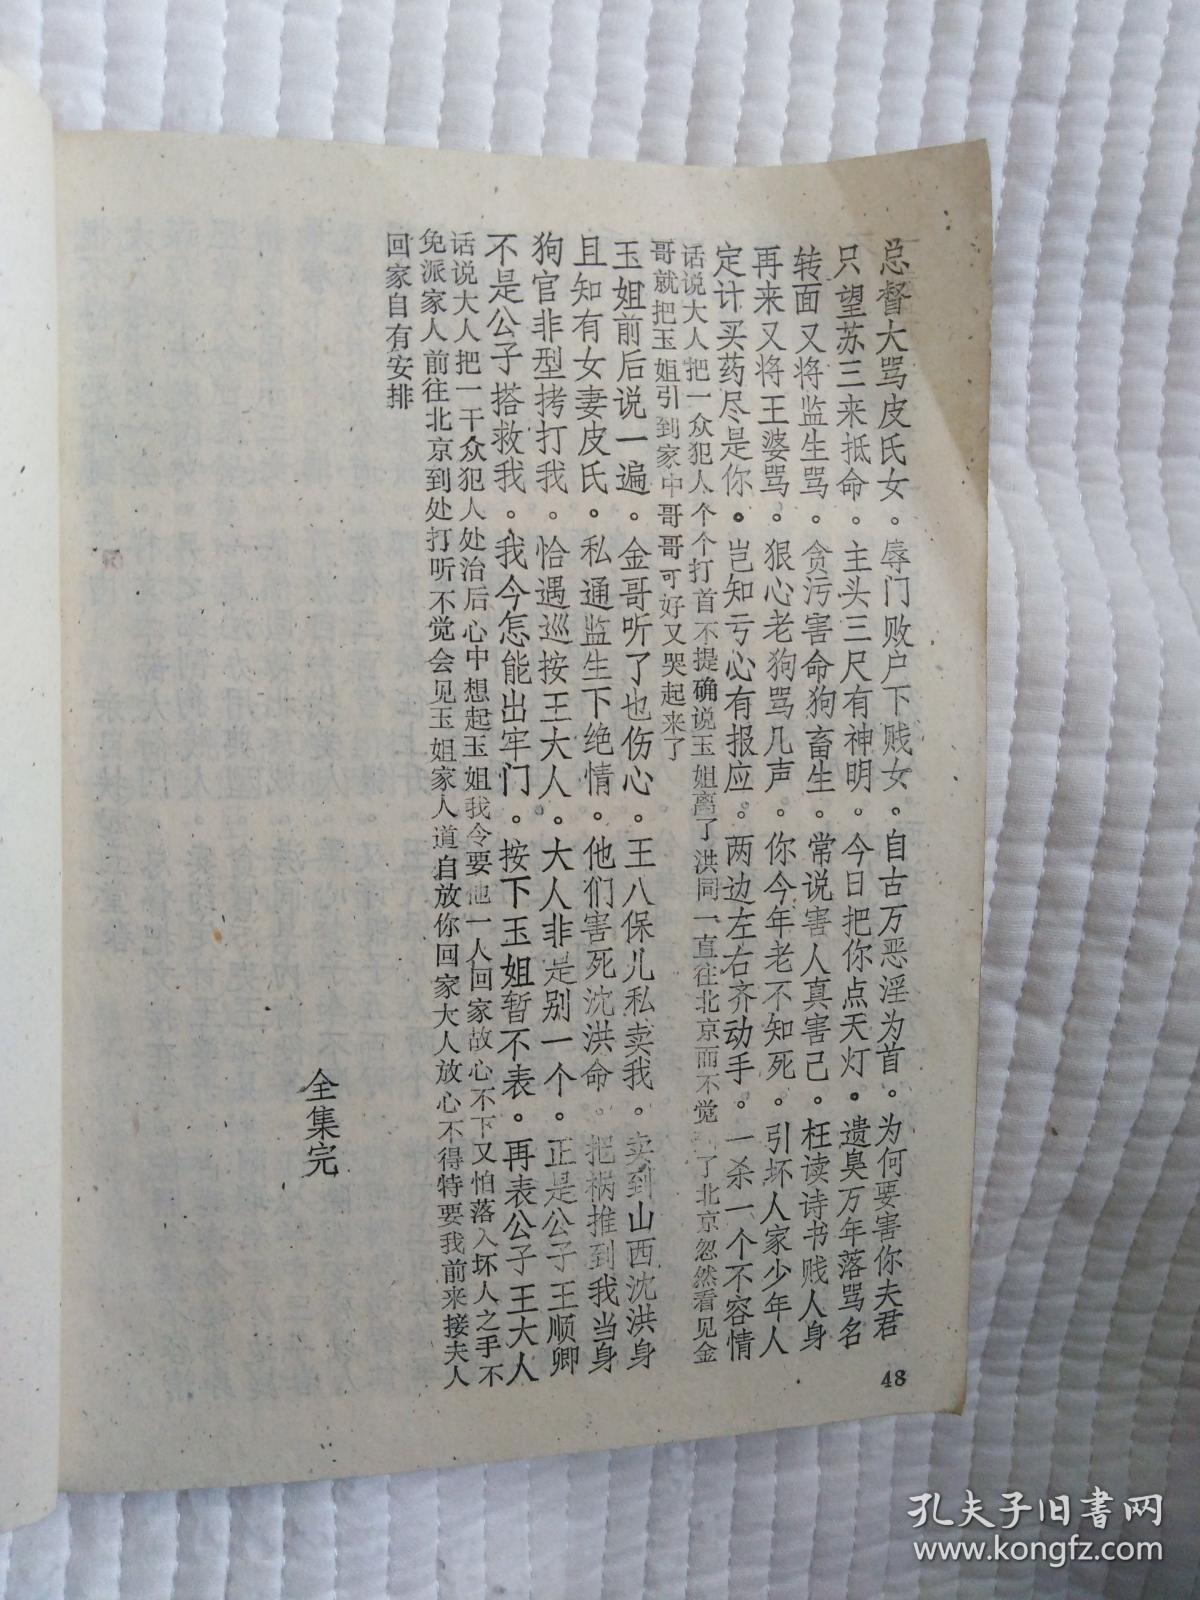 总督大骂皮氏女。辱门败户下贱女。自古万恶淫为首。为何要害你夫君
只望苏三来抵命。主头三尺有神明。今日把你点天灯。遗臭万年落骂名
转面又将监生骂。贪污害命狗畜生。常说害人真害己。枉读诗书贱人身
再来又将王婆骂。狠心老狗骂几声。你今年老不知死。引坏人家少年人
定计买药尽是你。岂知亏心有报应。两边左右齐动手。一杀一个不容情
话说大人把一众犯人个个打首不提确说玉姐离了洪同一直往北京而不觉到了北京忽然看见金
哥就把玉姐引到家中哥哥可好又哭起来了
玉姐前后说一遍。金哥听了也伤心。王八保儿私卖我。卖到山西沈洪身
且知有女妻皮氏。私通监生下绝情。他们害死沈洪命。把祸推到我当身
狗官非型拷打我。恰遇巡按王大人。大人非是别一个。正是公子王顺卿
不是公子搭救我。我今怎能出牢门。按下玉姐暂不表。再表公子王大人
话说大人把一干众犯人处治后心中想起玉姐我令要他一人回家故心不下又怕落入坏人之手不
免派家人前往北京到处打听不觉会见玉姐家人道自放你回家大人放心不得特要我前来接夫人
回家自有安排
全集完
48
孔夫子旧书网
www.kongfz.com